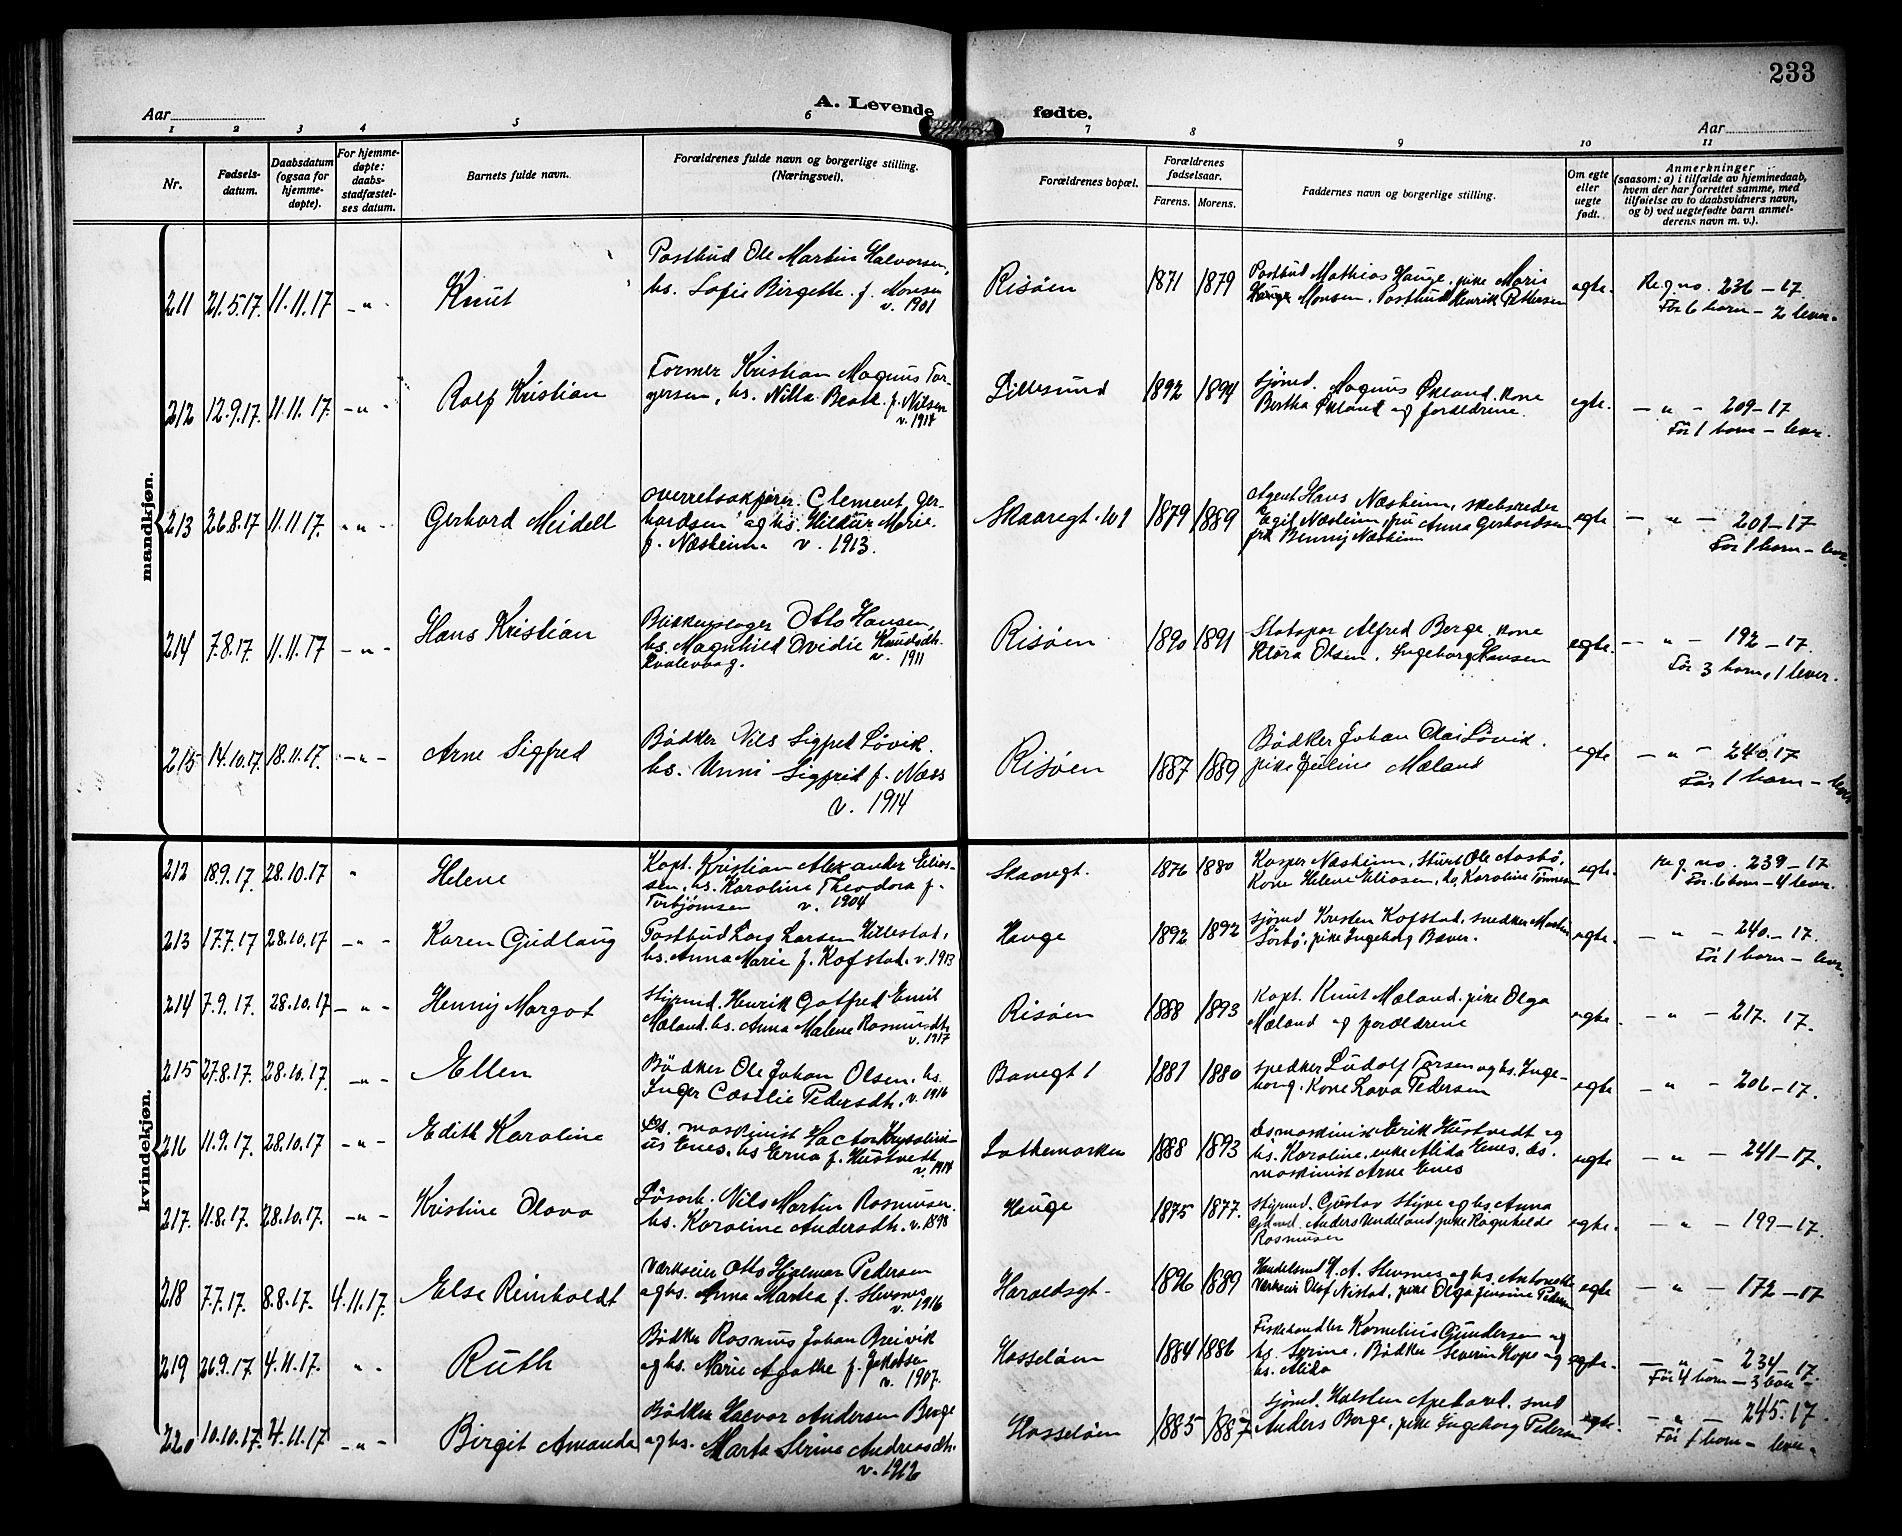 233
A. Levende fødte.
Aar
Aar
1 2 3 4 5 6 7 8 9 10 11
Nr.
Fødsels-
datum.
Daabsdatum
(ogsaa for
hjemme-
døpte).
For hjemme-
døpte:
daabs-
stadfæstel-
ses datum.
Barnets fulde navn.
Forældrenes fulde navn og borgerlige stilling.
(Næringsvei).
Forældrenes bopæl.
Forældrenes
fødselsaar.
Farens. Morens.
Faddernes navn og borgerlige stilling.
Om egte
eller
uegte
født.
Anmerkninger
(saasom: a) i tilfælde av hjemmedaab,
hvem der har forrettet samme, med
tilføielse av to daabsvidners navn,
og b) ved uegtefødte barn anmel-
derens navn m. v.).
mandkjøn.
211 21.5.17. 11.11.17 - " - Knut
Postbud Ole Martin Halvorsen,
hs. Sofie Birgette f. Monsen
v. 1901
Risöen 1871 1879
Postbud Mathias Hauge, pike Marie
Monsen, Postbud Henrik Pettersen
egte. Reg. no. 236-17.
För 6 born - 2 lever.
212 12.9.17. 11.11.17. - " - Rolf Kristian
Former Kristian Magnus Tor-
gersen, hs. Nilla Beate f. Nilsen
v. 1914
Lillesund 1892 1894
Sjömd. Magnus Økland, kone
Bertha Økland og forældrene.
egte. - " - 209-17
För 1 born - lever.
213 26.8.17 11.11.17. " " Gerhard Meidell
Overretssakfører Clement Ger-
hardsen og hs. Hildur Marie
f. Næsheim. v. 1913.
Skaaregt. 1879 1889
Agent Hans Næsheim, skibsreder
Egil Næsheim, fru Anna Gerhardsen
frk Benny Næsheim
egte - " - 201-17
För 1 born - lever.
214 7.8.17. 11.11.17 - " - Hans Kristian
Blikkenslager Otto Hansen,
hs. Magnhild Ovidie Knudsdtr.
Kvalevaag. v. 1911
Risöen 1890 1891
Alfred Berge, kone
Klara Olsen, Ingeborg Hansen
egte. - " - 192-17.
För 3 born, 1 lever.
215 14.10.17. 18.11.17. - " - Arne Sigfred
Bödker Nils Sigfred Lövik.
hs. Unni Sigfrid f. Næss
v. 1914
Risöen 1887 1889
Bödker Johan Olai Lövik.
pike Juline Mæland
egte - " - 240.17
För 1 born - lever
kvindekjøn.
212 18.9.17 28.10.17 " Helene
Kapt. Kristian Alexander Elias-
sen, hs. Karoline Theodora f.
Torbjörnsen v. 1904
Skaaregt. 1876 1880
Kasper Næsheim, Ole Aasbö,
Kone Helene Eliasen, do. Karoline Tönnesen
egte. reg. no. 239-17
För 6 born - 4 lever.
213 17.7.17 28.10.17 - " - Karen Gudlaug
Postbud Lars Larsen Hillestad,
hs. Anna Marie f. Kofstad. v. 1913
Hauge 1892 1892
Sjömd Kristen Kofstad, snedker Martin
Sörbö, pike Ingeborg Bæver.
egte. - " - 240.-17.
För 1 born - lever.
214 7.9.17 28.10.17 - " - Henny Margot
Styrmd. Henrik Gotfred Emil
Mæland. hs. Anna Malene Rasmusdtr.
v. 1917
Risöen 1888 1893
Kapt. Knut Mæland, pike Olga
Mæland og forældrene
egte. - " - 217. 17.
215 27.8.17. 28.10.17. - " - Ellen
Bödker Ole Johan Olsen, hs.
Inger Cæcilie Pedersdtr. v. 1916
Bavegt 1 1881 1880
snedker Ludolf Torsen og hs. Inge-
borg. Kone Lava Pedersen
egte - " - 206-17.
216 11.9.17. 28.10.17 - " - Edith Karoline
Ds. maskinist
Enes, hs Erna f. Hustvedt
v. 1914
Lothemarken 1888 1893
Ds maskinist Erik Hustvedt og
hs. Karoline, enke Alida Enes, ds.
maskinist Arne Enes
egte - " - 241-17.
217. 11.8.17. 28.10.17. - " - Kristine Olava
Lösarb. Nils Martin Rasmussen.
hs. Karoline Andersdtr. v. 1898
Hauge 1875 1877.
Styrmd. Gustav Styve og hs. Anna
Anders Undeland, pike Ragnhilde
Rasmusen
egte. - " - 199-17.
218 7.7.17. 8.8.17. 4.11.17. Else Reinholdt
Værkseier Otto Hjalmar Pedersen
og hs. Anna Martea f. Stensnes
v. 1916
Haraldsgt. 1896 1889
Handelsmd H. A. Stensnes og hs. Antonette
Værkseier Olaf Nistad, pike Olga Jensine Pedersen
egte - " - 172-17
219 26.9.17. 4.11.17. " - Ruth
Bödker Rasmus Johan Breivik
og hs. Marie Agathe f. Jakobsen
v. 1907.
Hasseløen 1884 1886
Fiskehandler Kornelius Gundersen og
hs. Serine, Bødker Severin Hope og
hs. Alida
egte. - " - 234-17.
För 4 born - 3
220 10.10.17. 4.11.17 - " - Birgit Amanda
Bödker Halvor Andersen Berge
og hs. Marta Serine Andreasdtr.
v. 1912
Hasseløen 1885 1887
Sjömd. Halsten Apeland, smed
Anders Berge, pike Ingeborg Pedersen
egte. - " - 245.17.
För 1 born - lever.